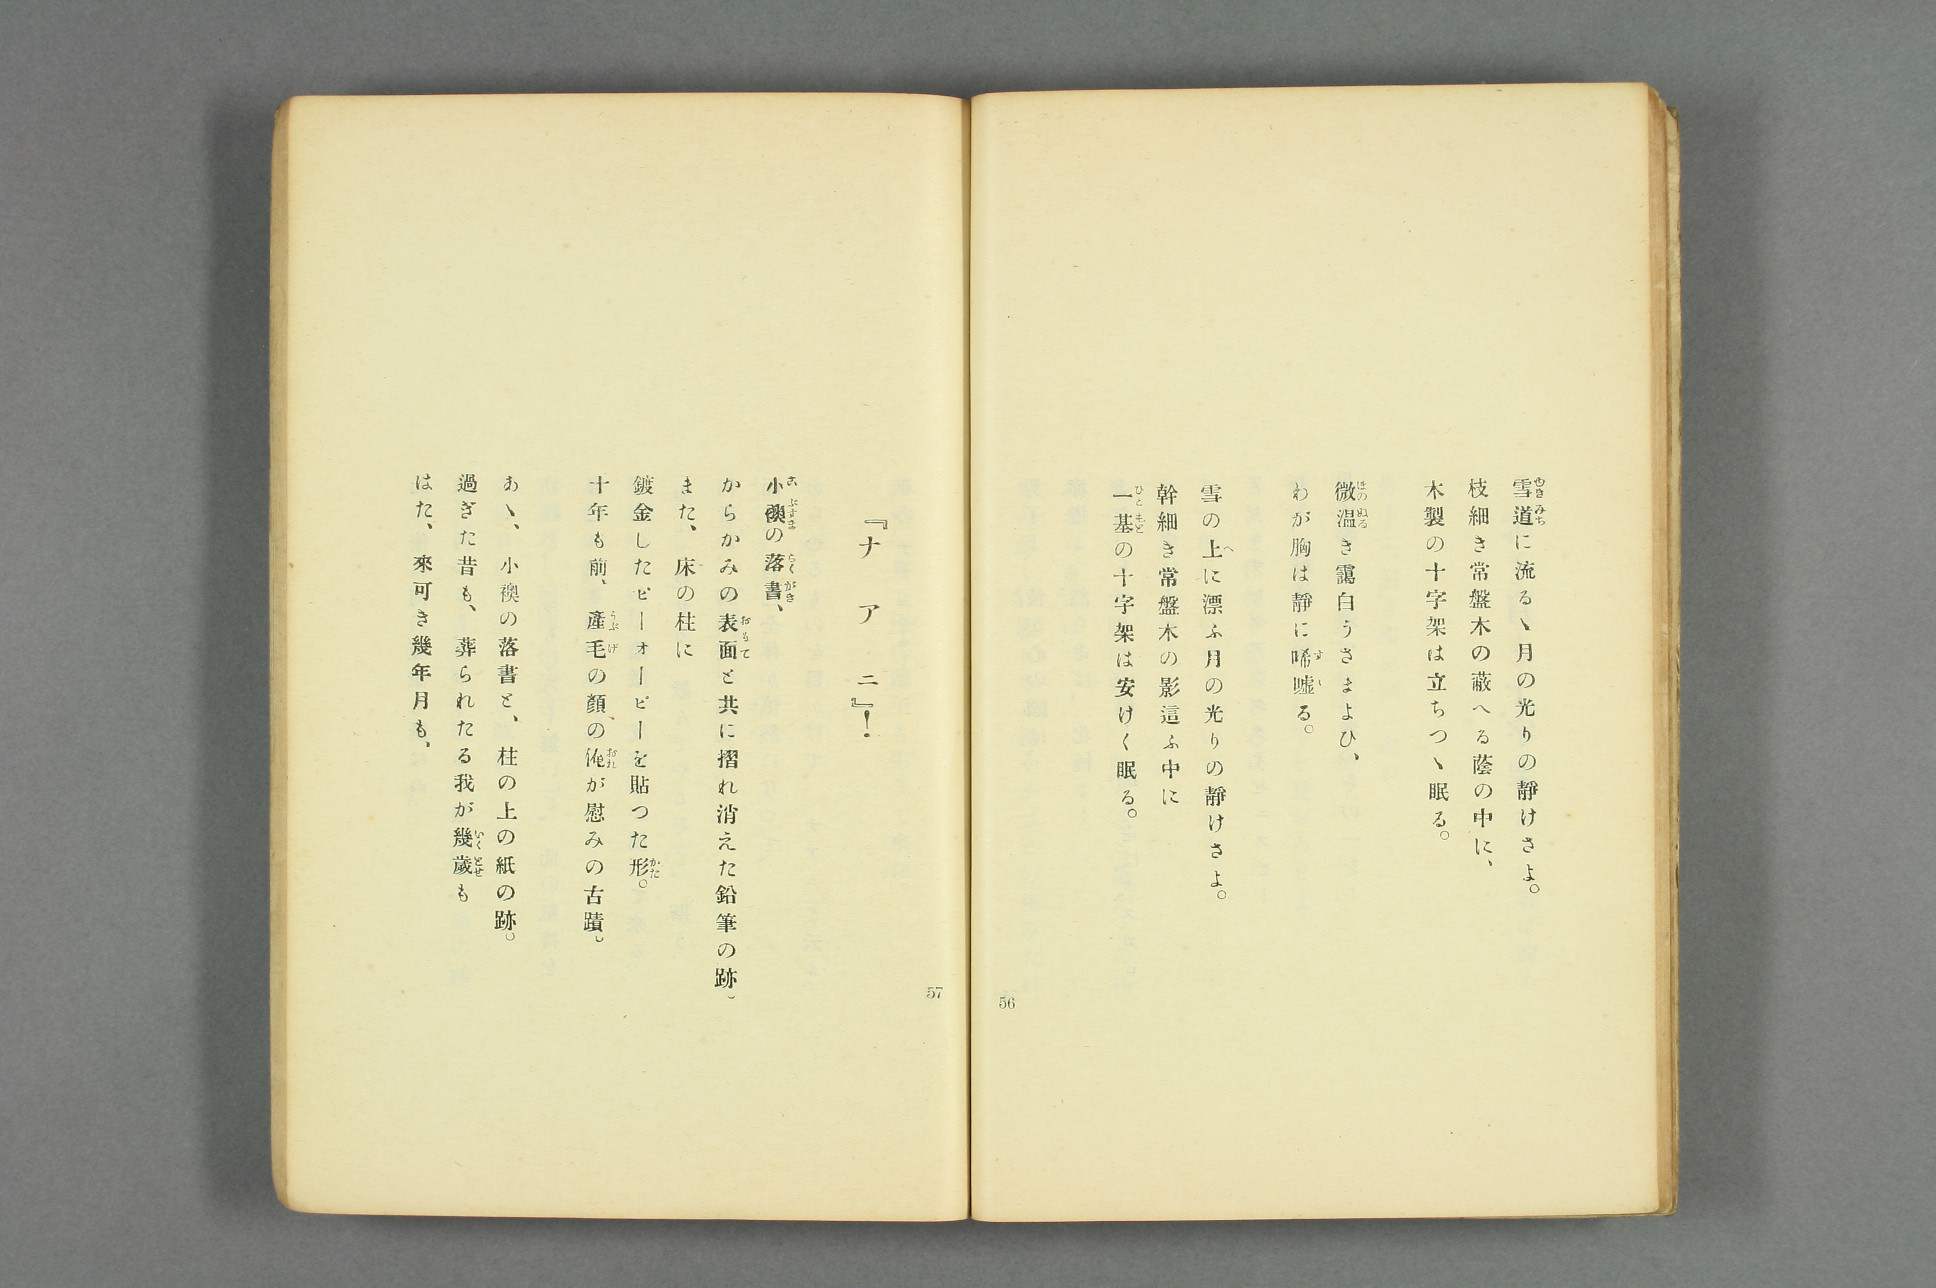 雪道に流るゝ月の光りの靜けさよ。
枝細き常盤木の蔽へる蔭の中に、
木製の十字架は立ちつゝ眠る。
微温き靄白うさまよひ、
わが胸は靜に唏嘘る。
雪の上に漂ふ月の光りの靜けさよ。
幹細き常盤木の影這ふ中に
一基の十字架は安けく眠る。
56
『ナアニ』！
小襖の落書、
からかみの表面と共に摺れ消えた鉛筆の跡。
また、床の柱に
鍍金したピーォーピーを貼つた形。
十年も前、產毛の顏の俺が慰みの古蹟。
あゝ、小襖の落書と、柱の上の紙の跡。
過ぎた昔も、葬られたる我が幾歲も
はた、來可き幾年月も、
57